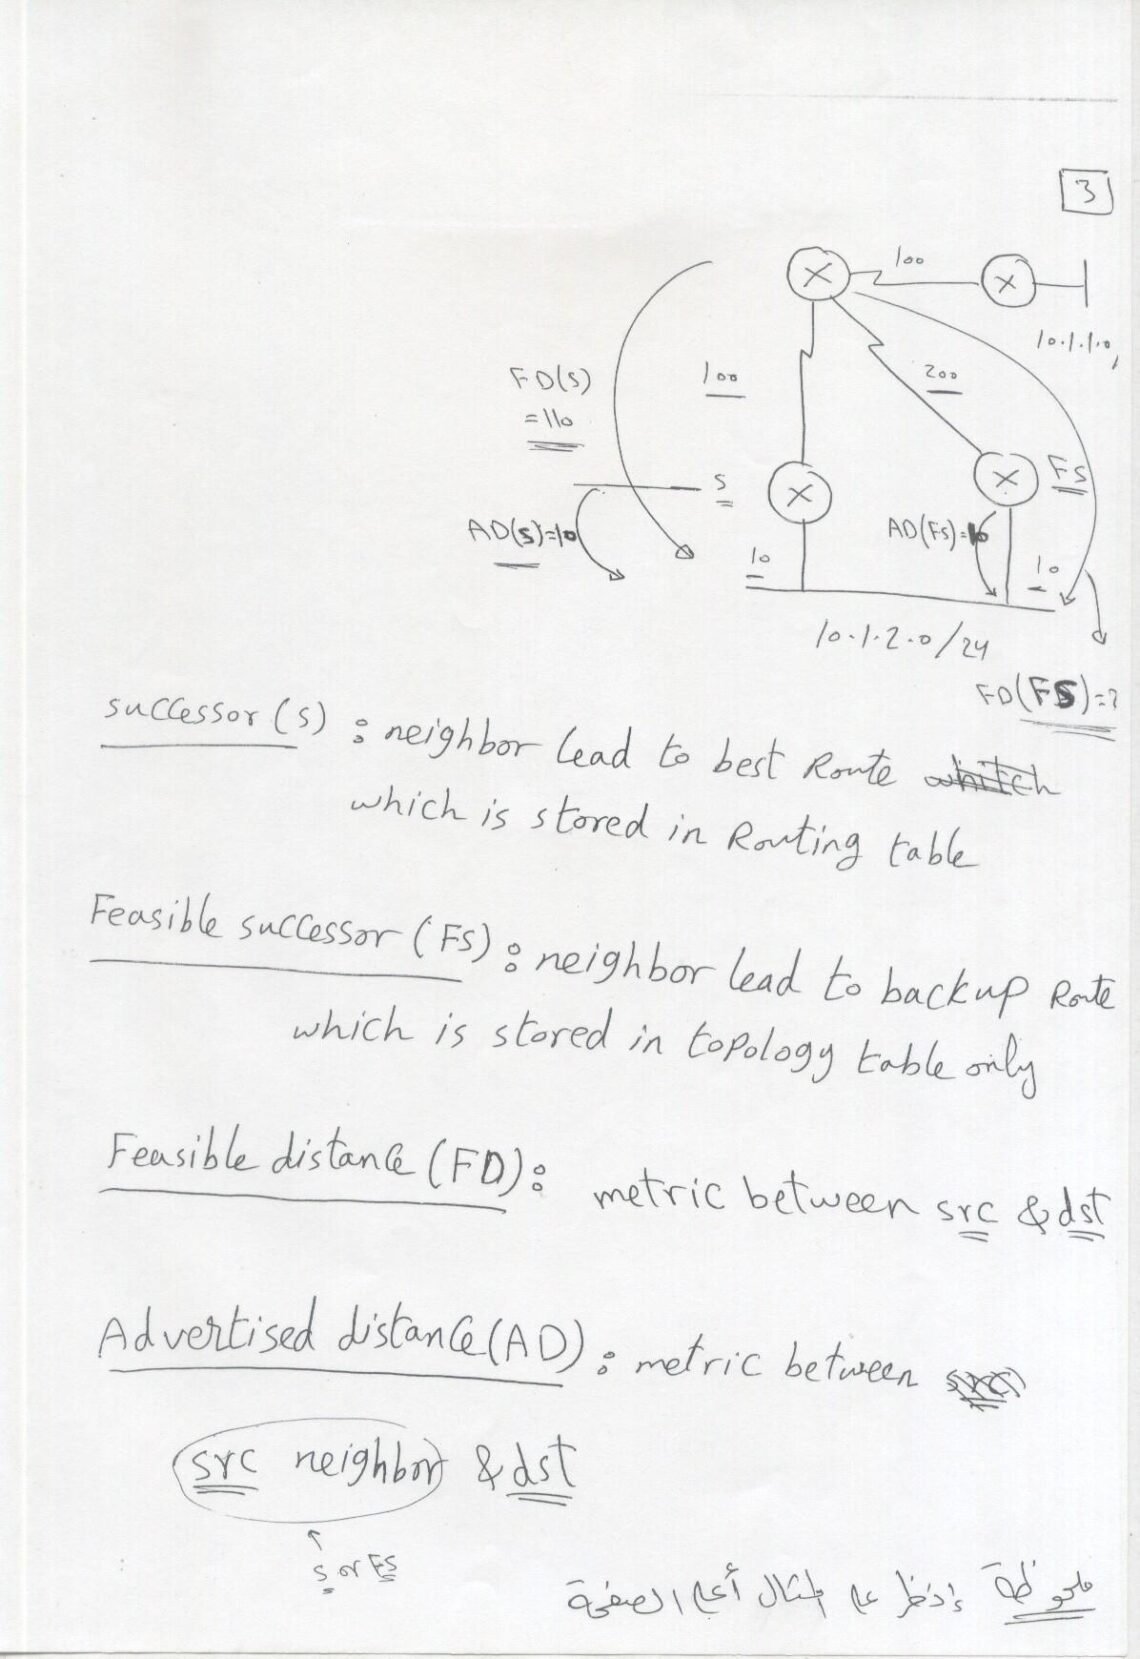 3
100
10.1.1.0,
FD(S)
=110
100
200
S
FS
AD(S)=10
AD(FS)=10
10
10
10.1.2.0/24
FD(FS)=?
successor(s) : neighbor lead to best Route
which is stored in Routing table
Feasible successor (FS) : neighbor lead to backup Route
which is stored in topology table only
Feasible distance (FD) : metric between src & dst
Advertised distance (AD) : metric between
src neighbor & dst
↑
S or FS
ملحوظة إنظر على المثال أعلى الصفحة